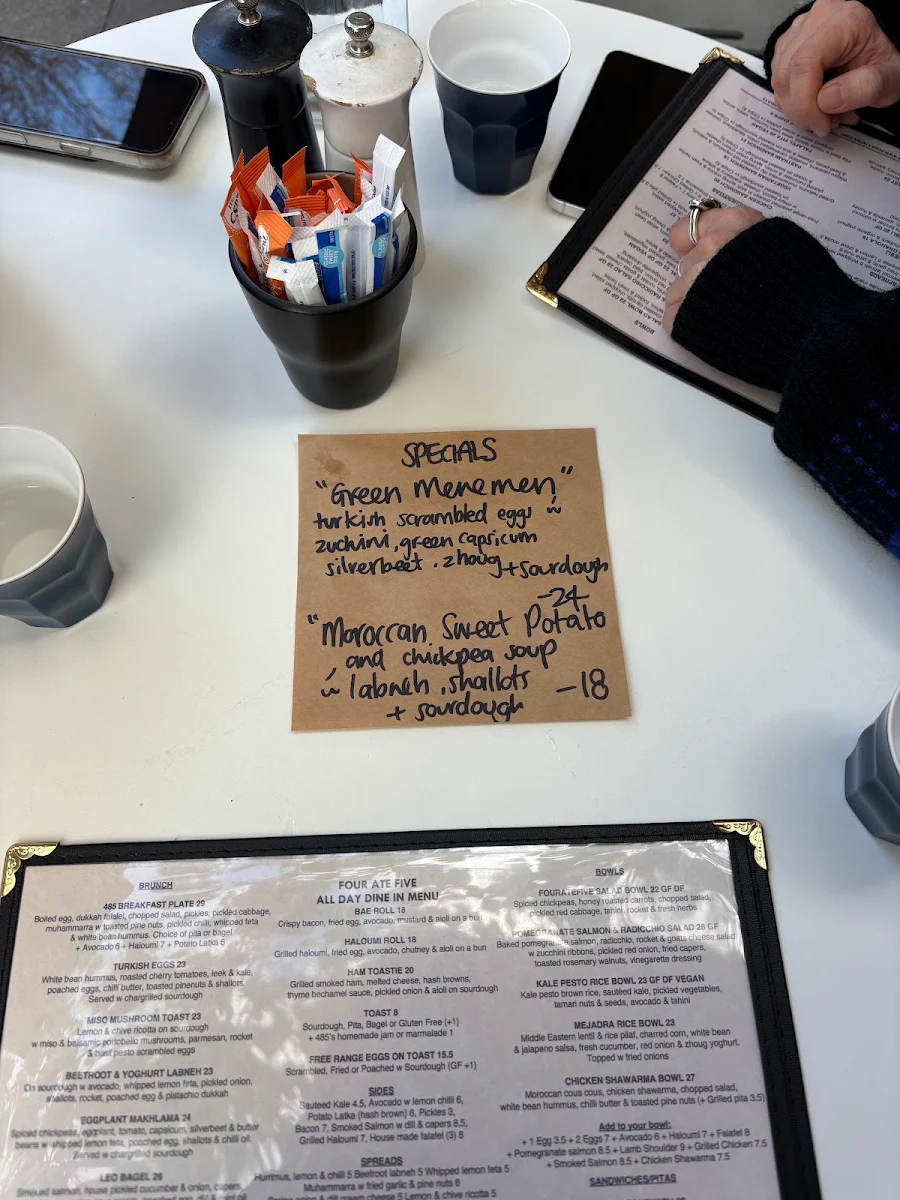 SPECIALS
"Green Menemen"
turkish scrambled eggs w
zuchini, green capsicum
silverbeet . zhoug + sourdough
-24-
"Moroccan Sweet Potato
and chickpea soup
w labneh, shallots -18
+ sourdough
BRUNCH
485 BREAKFAST PLATE 29
Boiled egg, dukkah falafel, chopped salad, pickles, pickled cabbage,
muhammarra w toasted pine nuts, pickled chilli, whipped feta
& white bean hummus. Choice of pita or bagel
+ Avocado 6 + Haloumi 7 + Potato Latka 6
TURKISH EGGS 23
White bean hummus, roasted cherry tomatoes, leek & kale,
poached eggs, chilli butter, toasted pinenuts & shallots.
Served w chargrilled sourdough
MISO MUSHROOM TOAST 23
Lemon & chive ricotta on sourdough
w miso & balsamic portobello mushrooms, parmesan, rocket
& basil pesto scrambled eggs
BEETROOT & YOGHURT LABNEH 23
On sourdough w avocado, whipped lemon feta, pickled onion,
shallots, rocket, poached egg & pistachio dukkah
EGGPLANT MAKHLAMA 24
Spiced chickpeas, eggplant, tomato, capsicum, silverbeet & butter
beans w whipped lemon feta, poached egg, shallots & chilli oil.
Served w chargrilled sourdough
LEO BAGEL 26
Smoked salmon, house pickled cucumber & onion, capers,
FOUR ATE FIVE
ALL DAY DINE IN MENU
BAE ROLL 18
Crispy bacon, fried egg, avocado, mustard & aioli on a bun
HALOUMI ROLL 18
Grilled haloumi, fried egg, avocado, chutney & aioli on a bun
HAM TOASTIE 20
Grilled smoked ham, melted cheese, hash browns,
thyme bechamel sauce, pickled onion & aioli on sourdough
TOAST 8
Sourdough, Pita, Bagel or Gluten Free (+1)
+ 485's homemade jam or marmalade 1
FREE RANGE EGGS ON TOAST 15.5
Scrambled, Fried or Poached w Sourdough (GF +1)
SIDES
Sauteed Kale 4.5, Avocado w lemon chilli 6,
Potato Latka (hash brown) 6, Pickles 3,
Bacon 7, Smoked Salmon w dill & capers 8.5,
Grilled Haloumi 7, House made falafel (3) 8
SPREADS
Hummus, lemon & chilli 5 Beetroot labneh 5 Whipped lemon feta 5
Muhammarra w fried garlic & pine nuts 6
Spring onion & dill cream cheese 5 Lemon & chive ricotta 5
BOWLS
FOURATEFIVE SALAD BOWL 22 GF DF
Spiced chickpeas, honey roasted carrots, chopped salad,
pickled red cabbage, tahini, rocket & fresh herbs
POMEGRANATE SALMON & RADICCHIO SALAD 28 GF
Baked pomegranate salmon, radicchio, rocket & goats cheese salad
w zucchini ribbons, pickled red onion, fried capers,
toasted rosemary walnuts, vinegarette dressing
KALE PESTO RICE BOWL 23 GF DF VEGAN
Kale pesto brown rice, sautéed kale, pickled vegetables,
tamari nuts & seeds, avocado & tahini
MEJADRA RICE BOWL 23
Middle Eastern lentil & rice pilaf, charred corn, white bean
& jalapeno salsa, fresh cucumber, red onion & zhoug yoghurt.
Topped w fried onions
CHICKEN SHAWARMA BOWL 27
Moroccan cous cous, chicken shawarma, chopped salad,
white bean hummus, chilli butter & toasted pine nuts (+ Grilled pita 3.5)
Add to your bowl:
+ 1 Egg 3.5 + 2 Eggs 7 + Avocado 6 + Haloumi 7 + Falafel 8
+ Pomegranate salmon 8.5 + Lamb Shoulder 9 + Grilled Chicken 7.5
+ Smoked Salmon 8.5 + Chicken Shawarma 7.5
SANDWICHES/PITAS